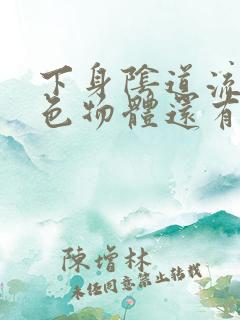 下身陰道流
色物體還有
陳增林
未經同意禁止轉載